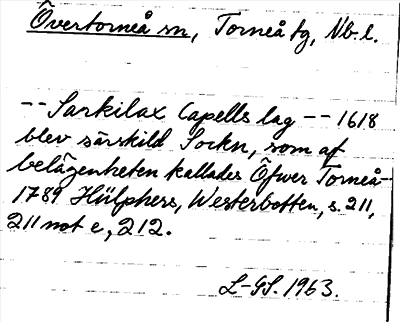 Övertorneå sn, Torneå tg, Nb. l.
-- Sarkilax Capells lag -- 1618
blev särskild Sockn, som af
belägenheten kallades Öfwer Torneå-
1789 Hülphers, Westerbotten, s. 211,
211 not e, 212.
L-GS. 1963.